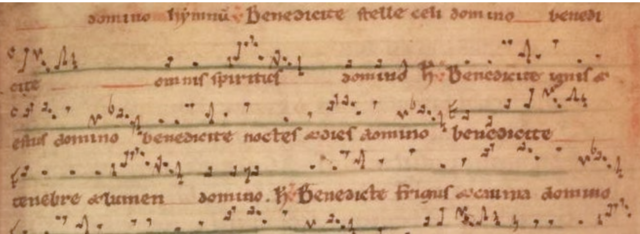 domino hymnū Benedicite stelle celi domino benedi
cite omnis spiritus domino Benedicite ignis &
estus domino benedicite noctes & dies domino benedicite
tenebre & lumen domino. Benedicte frigus & cauma domino